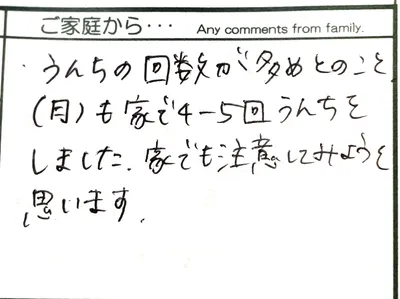 ご家庭から・・・ Any comments from family.
・うんちの回数が多めとのこと
(月)も家で4-5回うんちを
しました。家でも注意してみようと
思います。